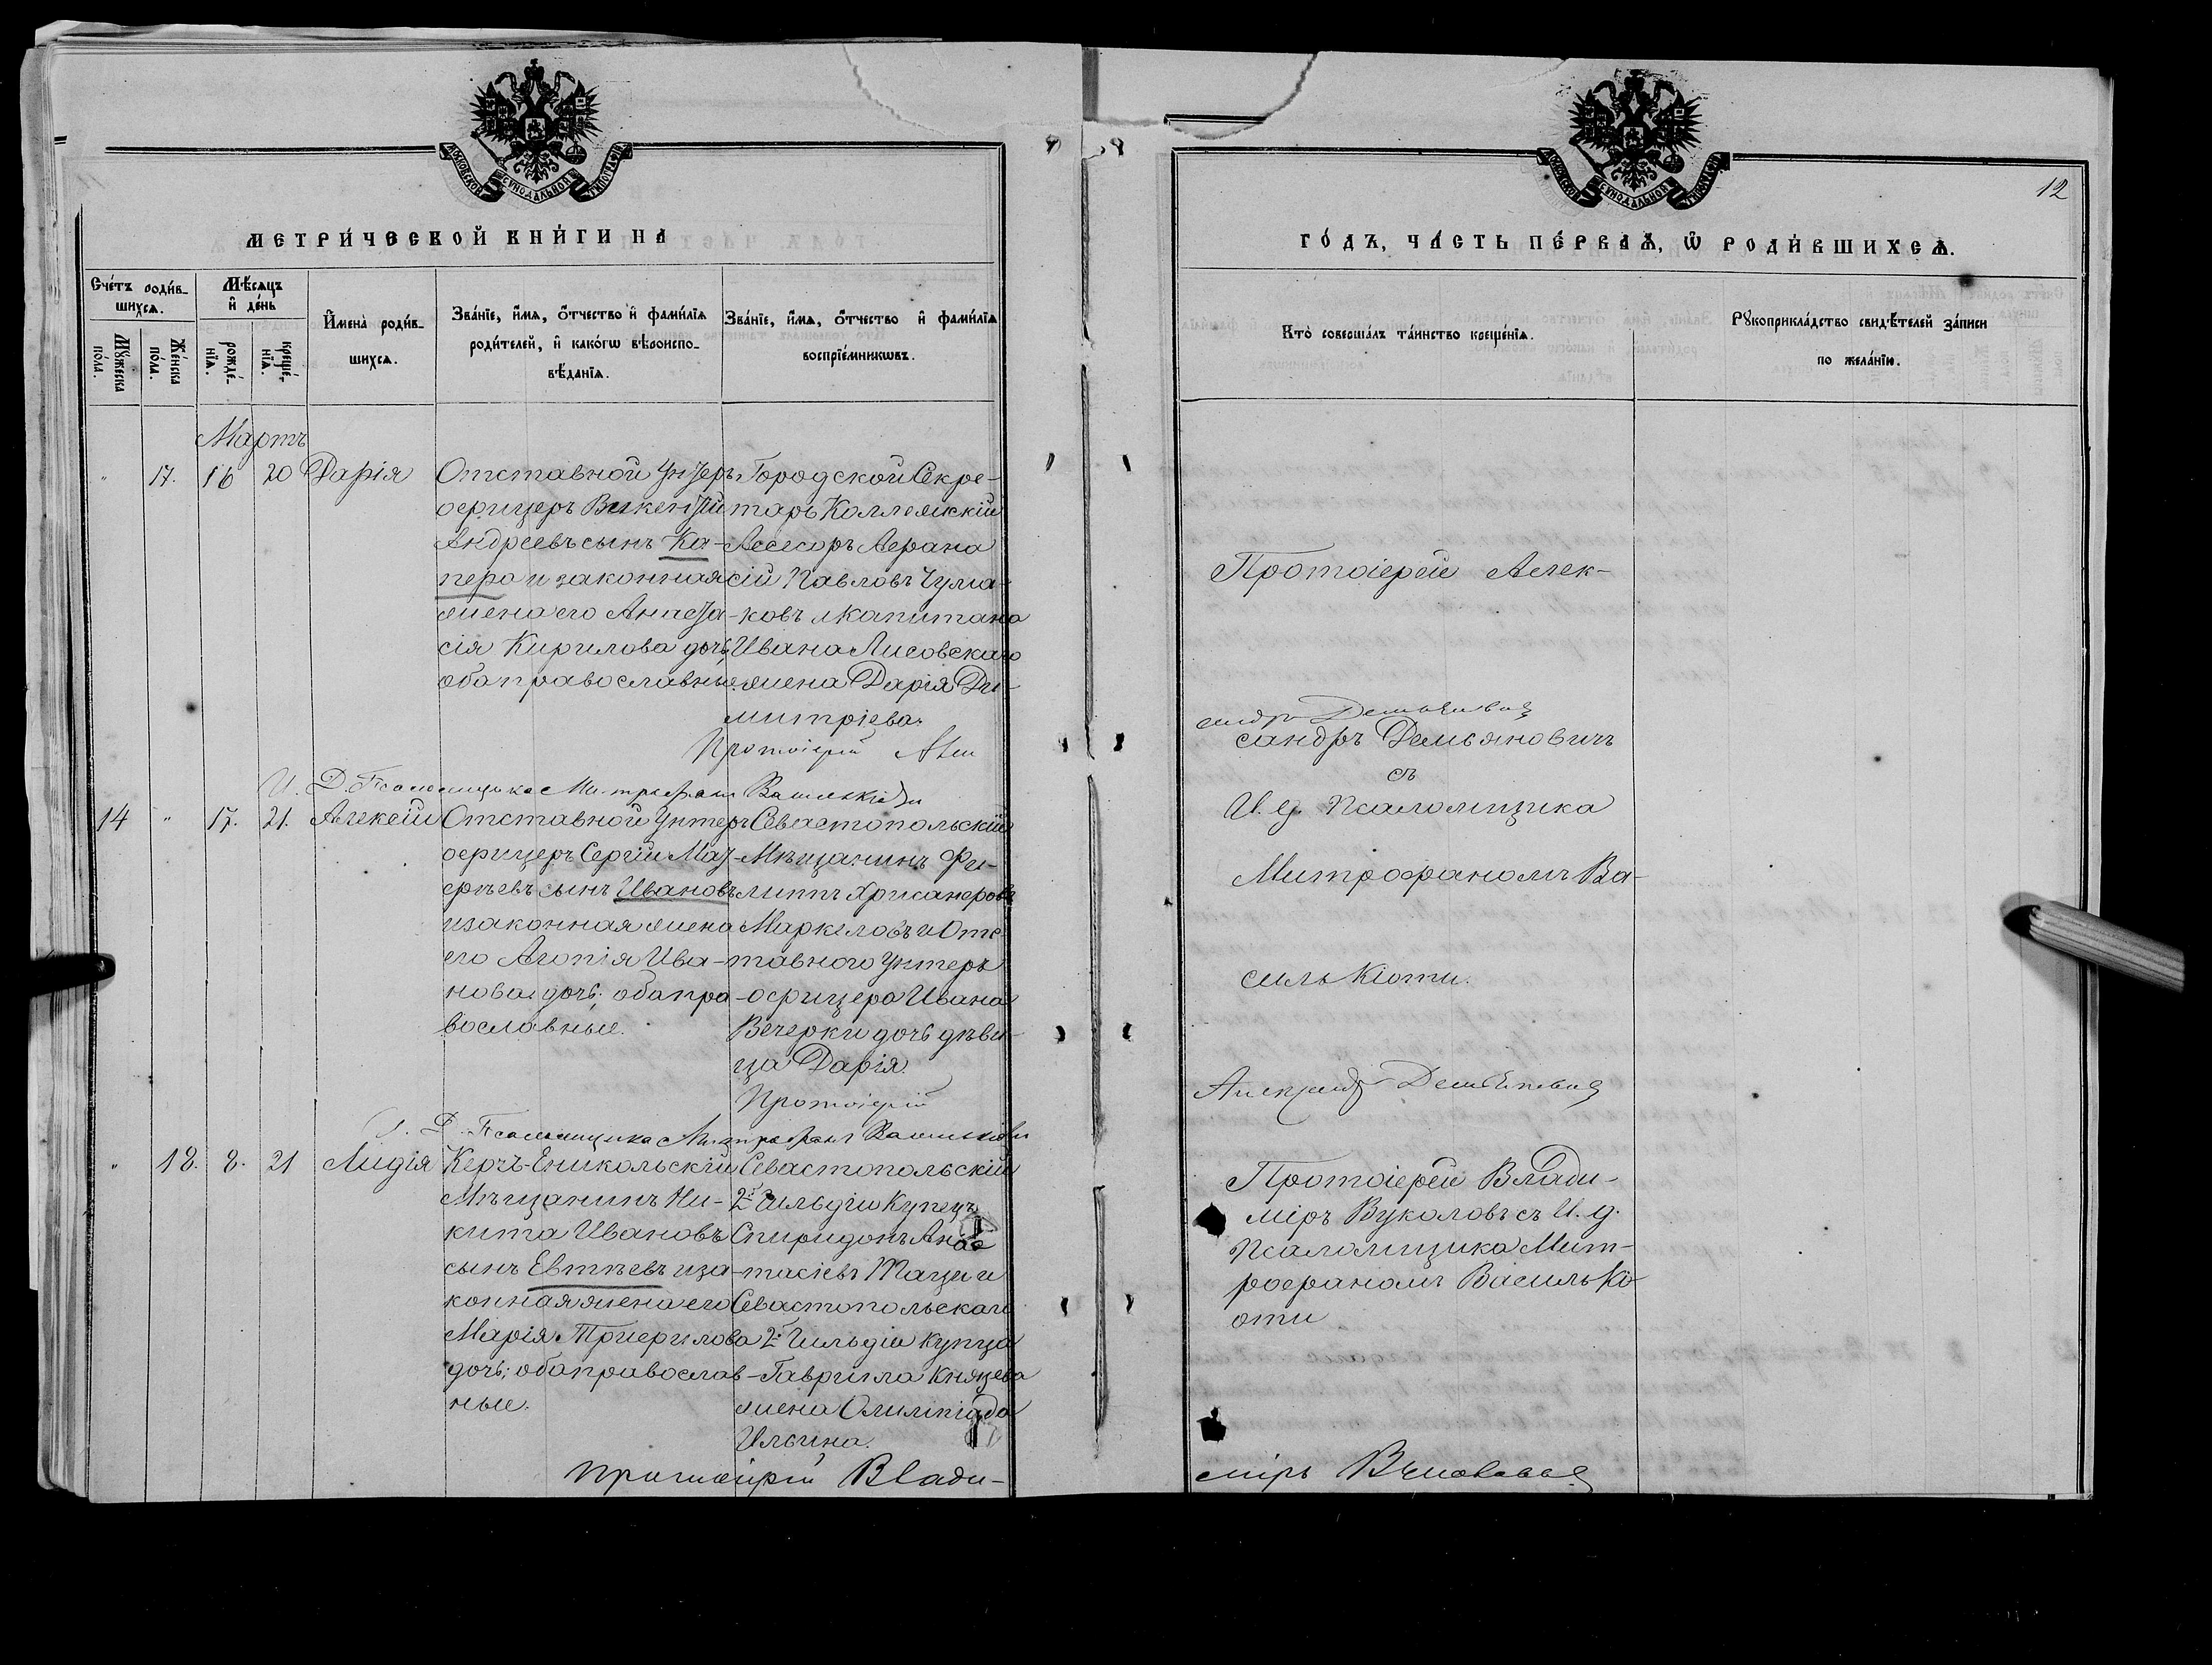 МОСКОВСКОЙ СѴНОДАЛЬНОЙ ТИПОГРАФІИ
МЕТРИ́ЧЕСКОЙ КНИ́ГИ НА
Сче́тъ роди́в-
шихсѧ.
Мѣ́сяцъ
и҆ де́нь
Мꙋ́жеска
по́ла.
Же́нска
по́ла.
рожде́-
нїѧ.
креще́-
нїѧ.
И҆мена̀ роди́в-
шихсѧ.
Зва́нїе, и҆́мѧ, ѻ҆́тчество и҆ фами́лїѧ
роди́телей, и҆ како́гѡ вѣроиспо-
вѣ́данїѧ.
Зва́нїе, и҆́мѧ, ѻ҆́тчество и҆ фами́лїѧ
воспрїе́мникѡвъ.
Мартъ
" 17. 16 20 Дарія
Отставной Унтеръ
офицеръ Викентій
Андреевъ сынъ Ка-
перо и законная
жена его Анаста-
сія Кирилова дочь,
оба православные.
Городской Секре-
таръ Коллежскій
Асессоръ Аерана
сій Павловъ Чума-
ковъ и Капитана
Ивана Лисовскаго
жена Дарія Ди-
митріева.
Протоіерей Алек
И. Д. Псаломщика Митрофанъ Василькіоти
14 " 17. 21. Алексій
Отставной Унтеръ
офицеръ Сергій Мат-
фѣевъ сынъ Ивановъ
и законная жена
его Агапія Ива-
нова дочь; оба пра-
вославные.
Севастопольскій
Мѣщанинъ Фи-
липпъ Хрисанфовъ
Маркеловъ и Отс-
тавного Унтеръ
офицера Ивана
Вечерки дочь дѣви-
ца Дарія.
Протоіерей
И. Д. Псаломщика Митрофанъ Василькіоти
" 18. 8. 21 Лидія
Керчь-Еникольскій
Мѣщанинъ Ни-
кита Ивановъ
сынъ Евтѣевъ и за-
конная жена его
Марія Трифилова
дочь; оба православ-
ные.
Севастопольскій
2й Гильдіи Купецъ
Спиридонъ Анас
тасіевъ Таци и
Севастопольскаго
2й Гильдіи купца
Гавриила Князева
жена Олимпіада
Ильина.
Протоіерей Влади-
МОСКОВСКОЙ СѴНОДАЛЬНОЙ ТИПОГРАФІИ
12
ГО́ДЪ, ЧА́СТЬ ПЕ́РВАѦ, Ѡ҆ РОДИ́ВШИХСѦ.
Кто̀ соверша́лъ та́инство креще́нїѧ.
Рꙋкоприкла́дство свидѣ́телей за́писи
по жела́нїю.
Протоіерей Алек-
сандръ Демьяновичъ
сандръ Демьяновичъ
съ
И. д. Псаломщика
Митрофаномъ Ва-
силькіоти.
Александръ Демьяновичъ
Протоіерей Влади-
міръ Вуколовъ съ И. д.
Псаломщика Мит-
рофаномъ Василькі-
оти
міръ Вуколовъ